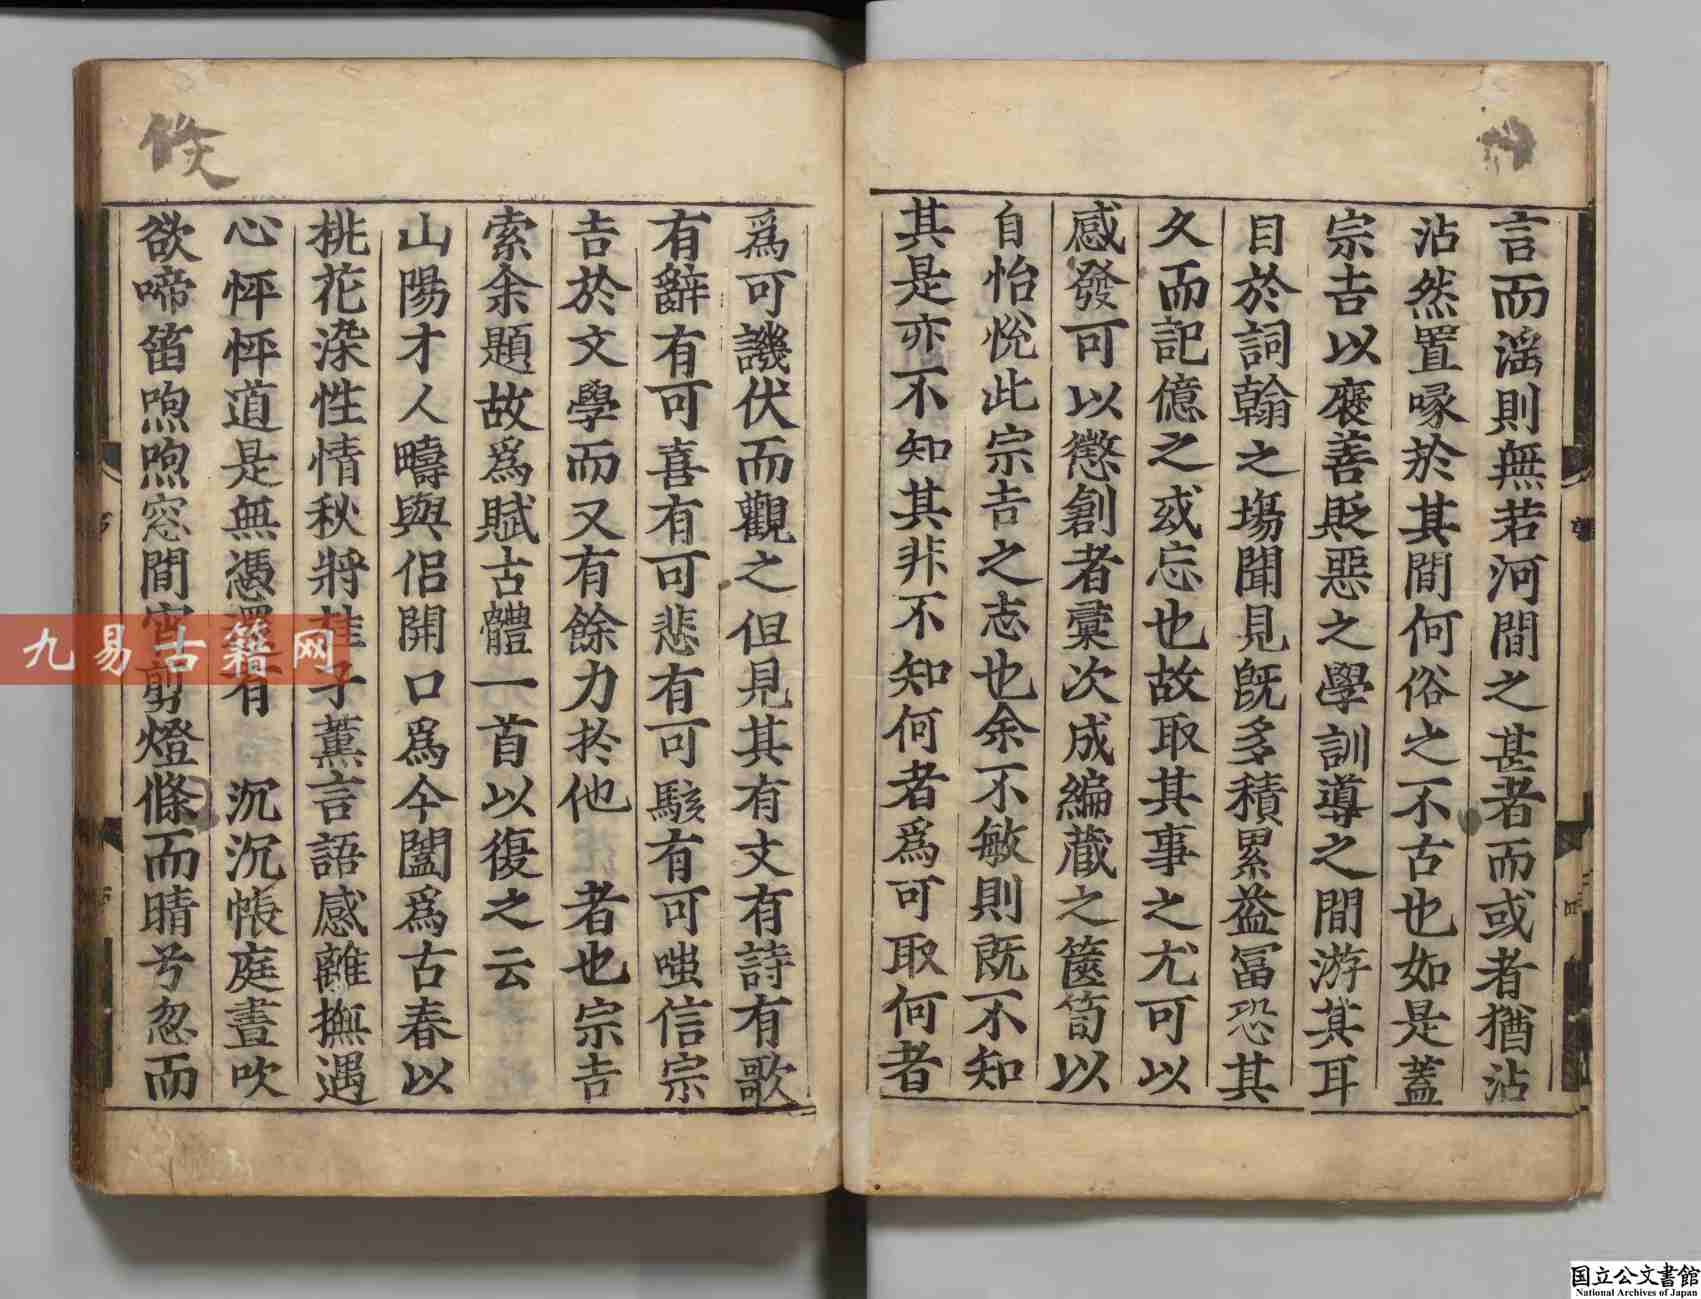 言而滛則無若河間之甚者而或者猶沾
沾然置喙於其間何俗之不古也如是蓋
宗吉以襃善貶惡之學訓導之間游其耳
目於詞翰之塲聞見既多積累益冨恐其
久而記億之或忘也故取其事之尤可以
感發可以懲創者彚次成編藏之篋笥以
自怡悅此宗吉之志也余不敏則既不知
其是亦不知其非不知何者爲可取何者
爲可譏伏而觀之但見其有文有詩有歌
有辭有可喜有可悲有可駭有可嗤信宗
吉於文學而又有餘力於他 者也宗吉
索余題故爲賦古體一首以復之云
山陽才人疇與侣開口爲今闔爲古春以
桃花染性情秋將桂子薰言語感離撫遇
心怦怦道是無憑還有 沉沉帳庭晝吹
欲啼笛喣喣窓間宵剪燈倐而晴兮忽而
倏
九易古籍网
国立公文書館
National Archives of Japan